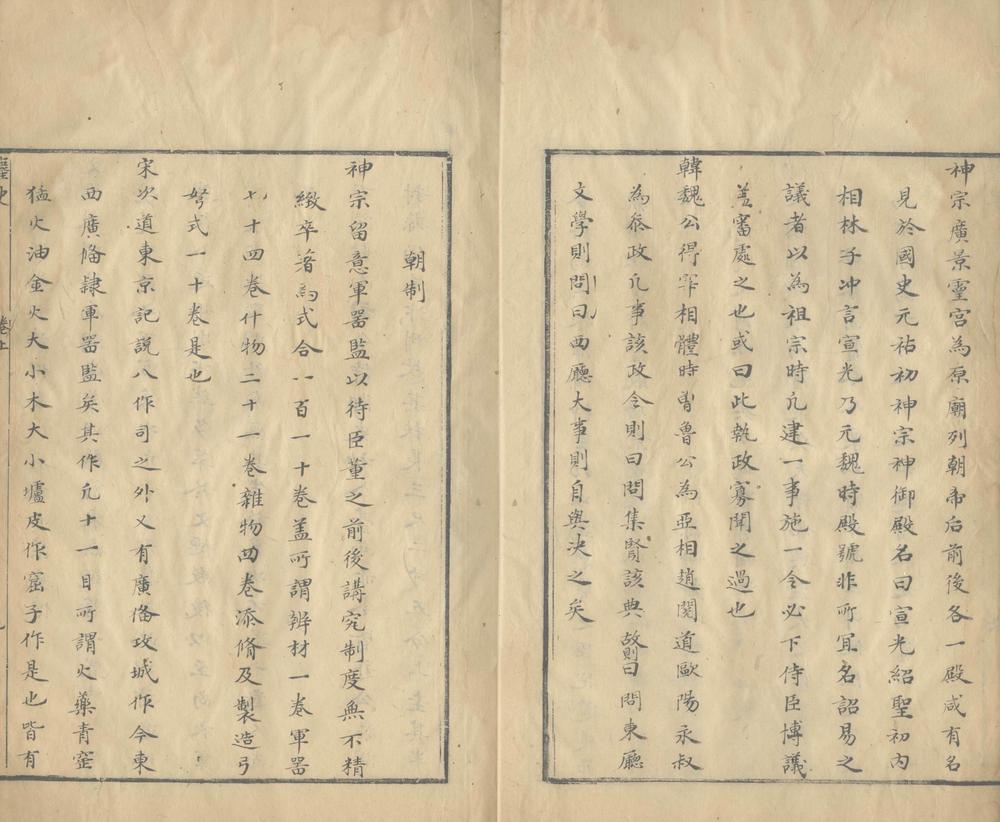 神宗廣景靈宮為原廟列朝帝后前後各一殿咸有名
見於國史元祐初神宗神御殿名曰宣光紹聖初內
相林子冲言宣光乃元魏時殿號非所冝名詔易之
議者以為祖宗時凢建一事施一令必下侍臣博議
葢審處之也或曰此執政寡聞之過也
韓魏公得宰相體時曽魯公為亞相趙閱道歐陽永叔
為叅政凢事該政令則曰問集賢該典故則曰問東廳
文學則問曰西廳大事則自與决之矣
朝制
神宗留意軍器監以待臣董之前後講究制度無不精
緻卒著為式合一百一十卷盖所謂辨材一卷軍器
七十四卷什物二十一卷雜物四卷添脩及製造弓
弩式一十卷是也
宋次道東京記說八作司之外又有廣俻攻城作今東
西廣俻隸軍器監矣其作凢十一目所謂火藥青窑
猛火油金火大小木大小爐皮作窟子作是也皆有
麈史
卷上